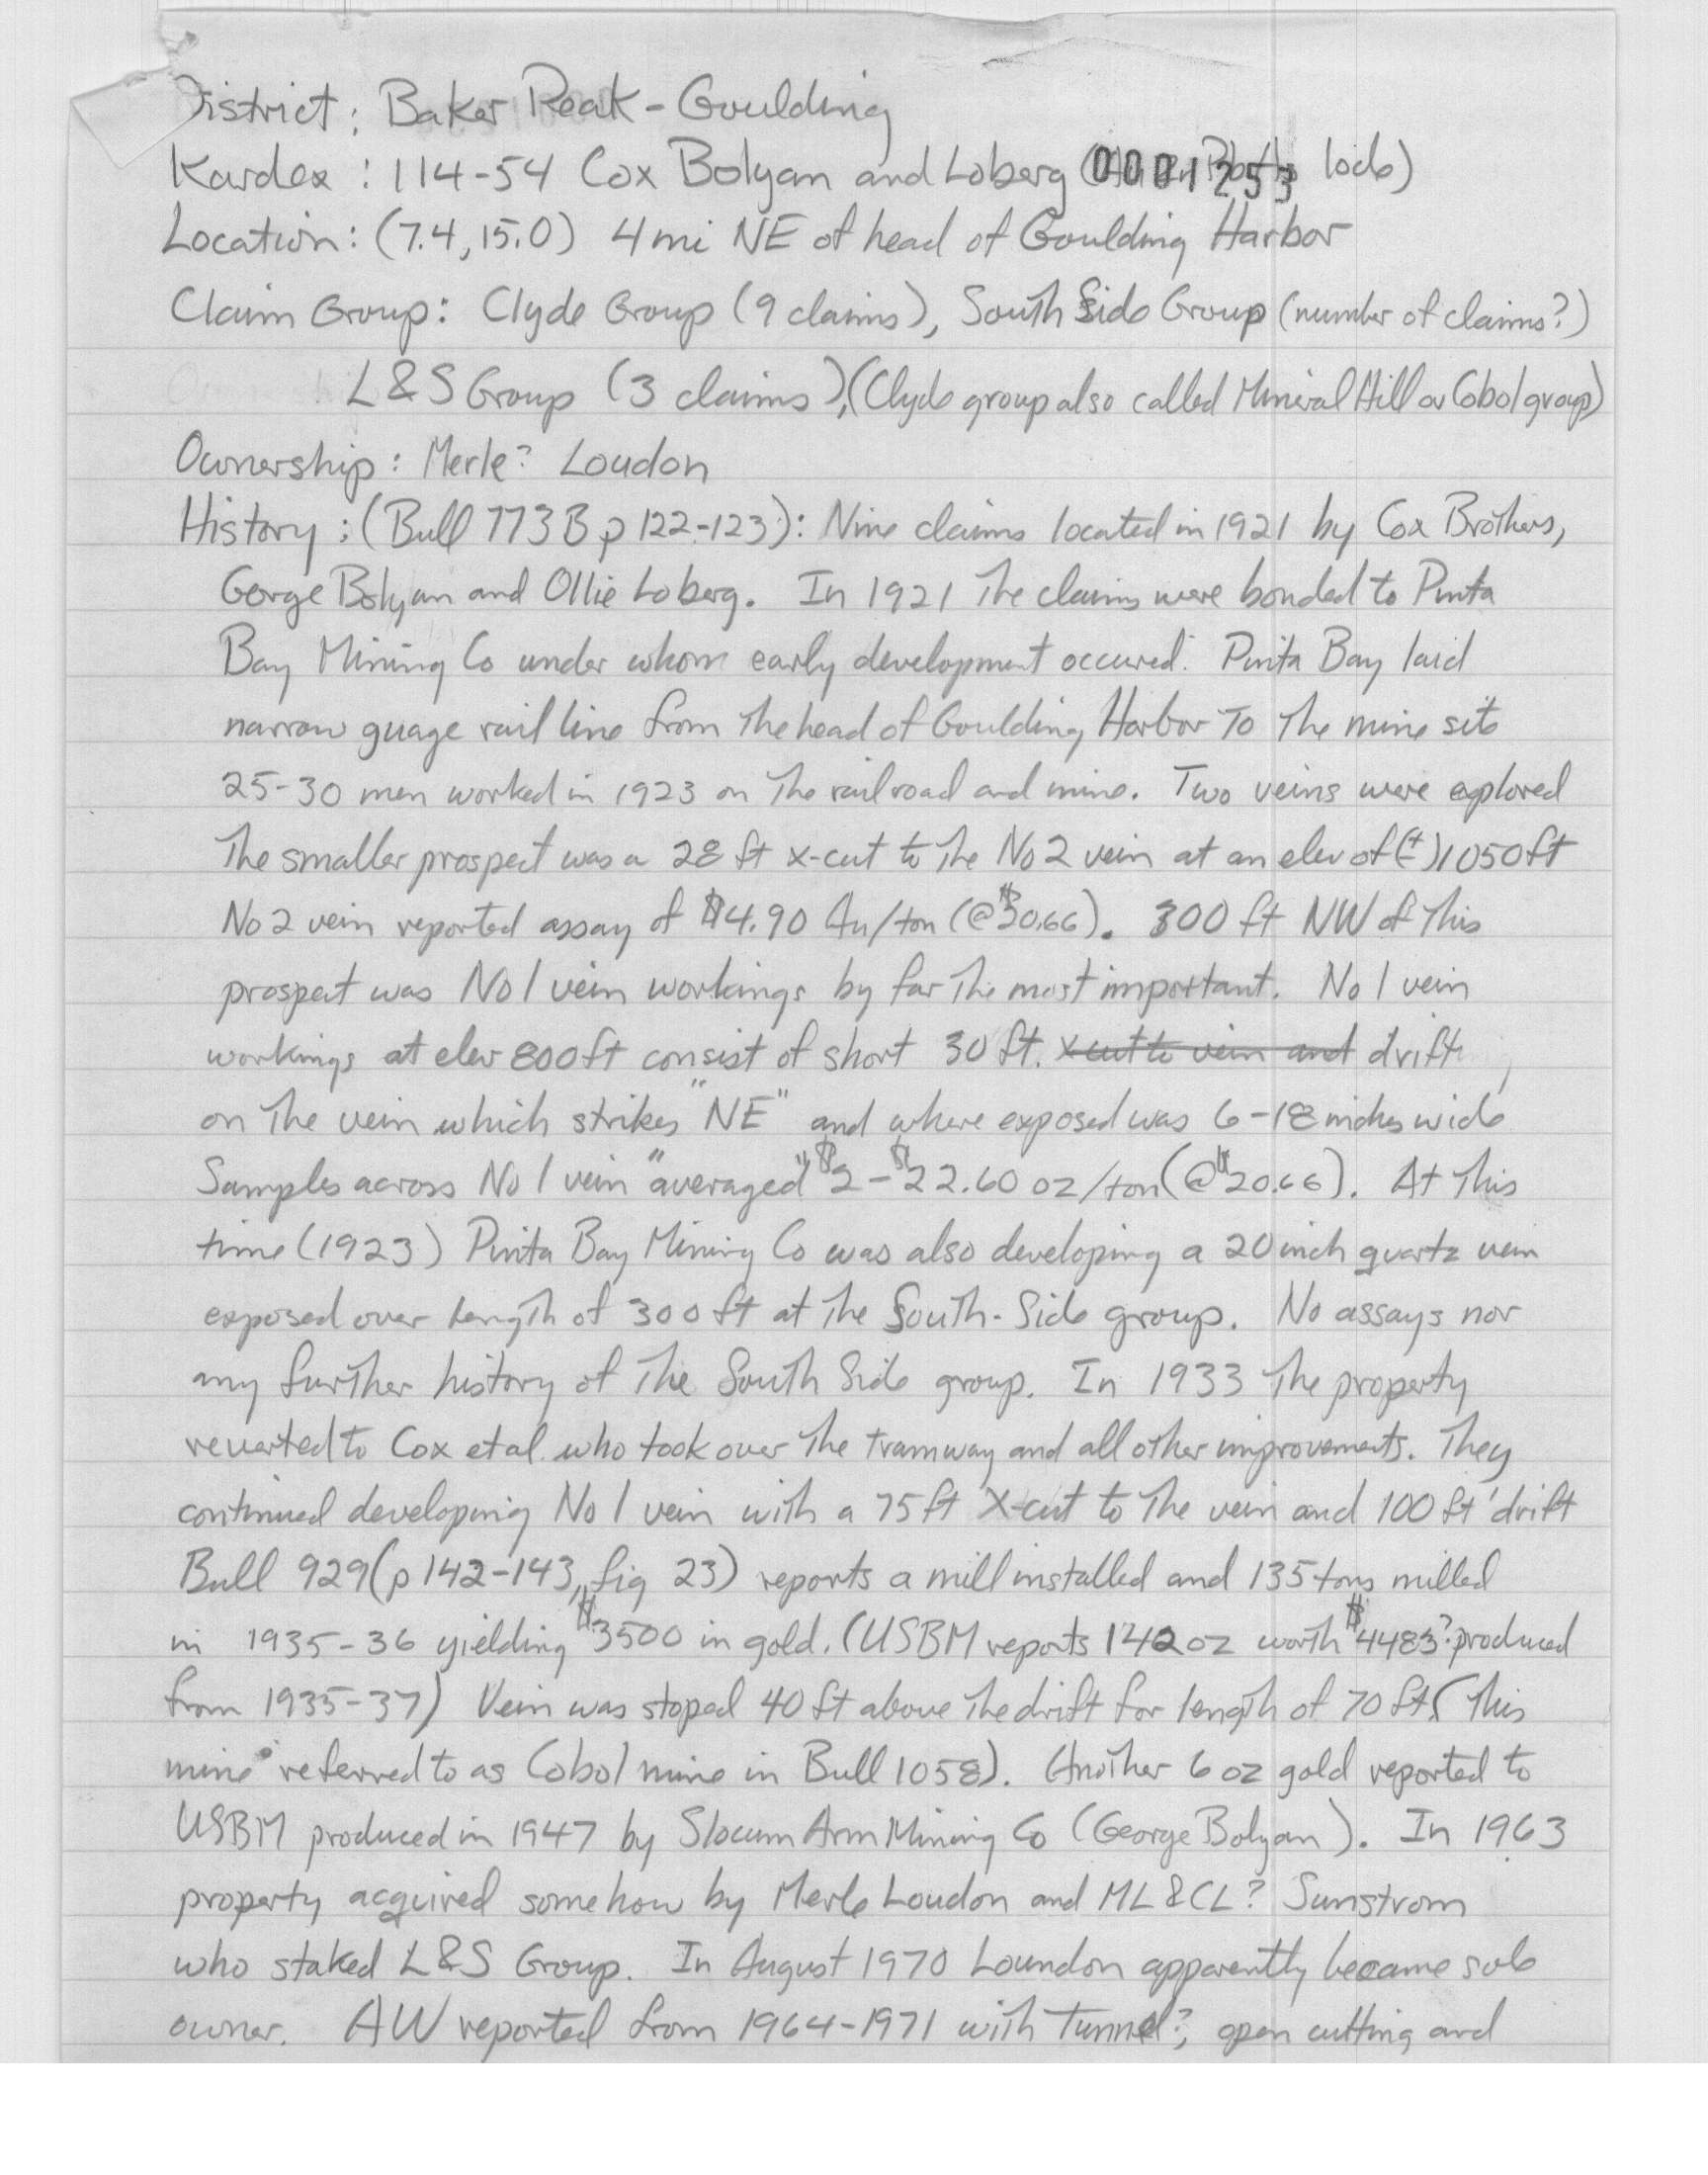 District: Baker Peak-Goulding
Kardex: 114-54 Cox Bolyan and Loberg ( lode)
0001253
Location: (7.4, 15.0) 4 mi NE of head of Goulding Harbor
Claim Group: Clyde Group (9 claims), South Side Group (number of claims?)
L&S Group (3 claims), (Clyde group also called Mineral Hill or Cobol group)
Ownership: Merle? Loudon
History: (Bull 773B p 122-123): Nine claims located in 1921 by Cox Brothers,
George Bolyan and Ollie Loberg. In 1921 the claims were bonded to Pinta
Bay Mining Co under whom early development occured. Pinta Bay laid
narrow guage rail line from the head of Goulding Harbor to the mine site
25-30 men worked in 1923 on the railroad and mine. Two veins were explored
The smaller prospect was a 28 ft x-cut to the No 2 vein at an elev of (±) 1050 ft
No 2 vein reported assay of $4.90 Au/ton (@ $20.66). 300 ft NW of this
prospect was No 1 vein workings by far the most important. No 1 vein
workings at elev 800 ft consist of short 30 ft. x-cut to vein and drift
on the vein which strikes "NE" and where exposed was 6-18 inches wide
Samples across No 1 vein "averaged" $2-$22.60 oz/ton (@ $20.66). At this
time (1923) Pinta Bay Mining Co was also developing a 20 inch quartz vein
exposed over length of 300 ft at the South-Side group. No assays nor
any further history of the South Side group. In 1933 the property
reverted to Cox et al. who took over the tramway and all other improvements. They
continued developing No 1 vein with a 75 ft X-cut to the vein and 100 ft drift
Bull 929 (p 142-143, fig 23) reports a mill installed and 135 tons milled
in 1935-36 yielding $3500 in gold. (USBM reports 142 oz worth $4483? produced
from 1935-37) Vein was stoped 40 ft above the drift for length of 70 ft. (This
mine referred to as Cobol mine in Bull 1058). Another 6 oz gold reported to
USBM produced in 1947 by Slocum Arm Mining Co (George Bolyan). In 1963
property acquired somehow by Merle Loudon and ML&CL? Sunstrom
who staked L&S Group. In August 1970 Loundon apparently became sole
owner. AW reported from 1964-1971 with tunnel?, open cutting and